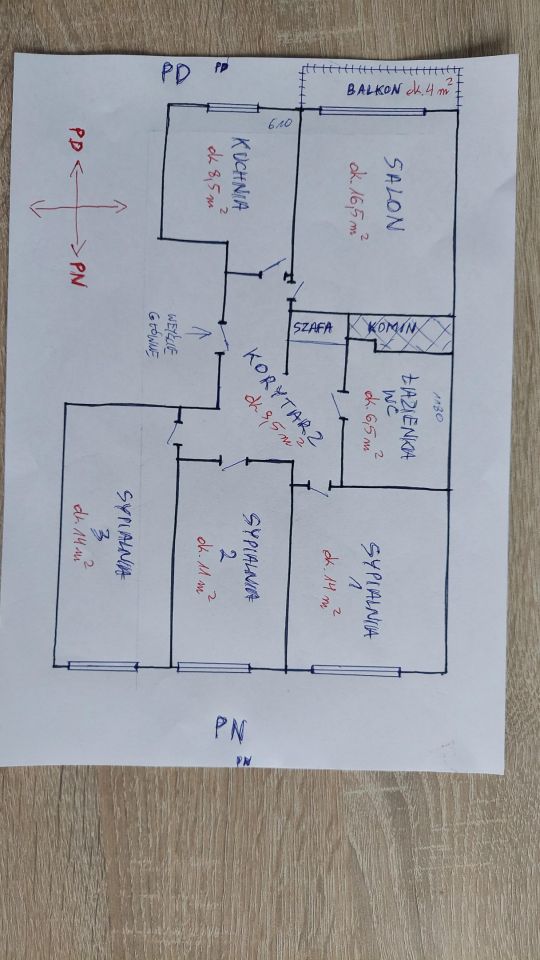 PD
PD
BALKON ok. 4 m²
610
KUCHNIA
ok 8,5 m²
SALON
ok. 16,5 m²
PD
PN
WEJŚCIE
GŁÓWNE
SZAFA
KOMIN
KORYTARZ
ok. 9,5 m²
1180
ŁAZIENKA
WC
ok. 6,5 m²
SYPIALNIA
3
ok. 14 m²
SYPIALNIA
2
ok. 11 m²
SYPIALNIA
1
ok. 14 m²
PN
PN